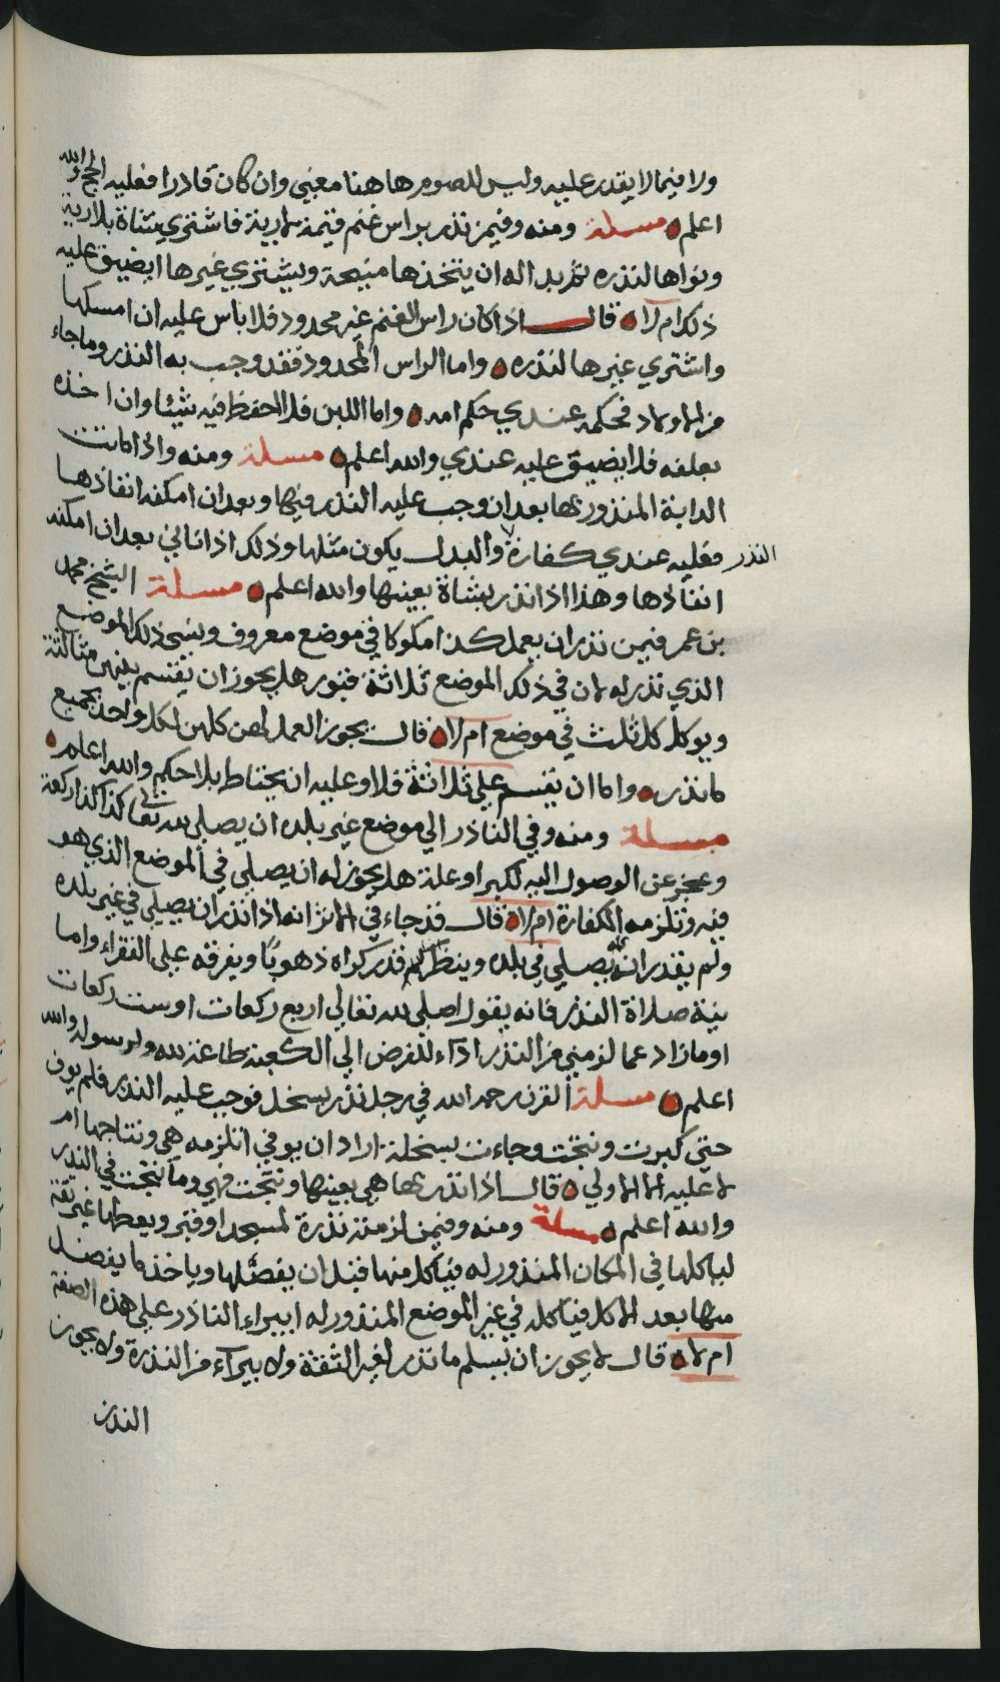 ولا فيما لا يقدر عليه وليس للصوم هاهنا معني وان كان قادرا فعليه الحج والله
اعلم مسلة ومنه وفيمن نذر براس غنم قيمة لارية فاشتري شاة بلارية
ونواها لنذره ثم بداله ان يتخذها منيحة ويشتري غيرها ايضيق عليه
ذلك ام لا قال اذا كان راس الغنم غير محدود فلا باس عليه ان امسكها
واشتري غيرها لنذره واما الراس المحدود فقد وجب به النذر وما جاء
من الاولاد فحكمه عندي حكم امه واما اللبن فلا احفظ فيه شيئا وان اخذه
بعلفه فلا يضيق عليه عندي والله اعلم مسلة ومنه واذا ماتت
الدابة المنذور بها بعد ان وجب عليه النذر فيها وبعد ان امكنه انفاذها
فعليه عندي كفارة النذر والبدل يكون مثلها وذلك اذا تاني بعد ان امكنه
انفاذها وهذا اذا نذر بشاة بعينها والله اعلم مسلة الشيخ محمد
بن عمر فيمن نذر ان يعمل كذا مكوكا في موضع معروف ونسي ذلك الموضع
الذي نذر له لان في ذلك الموضع ثلاثة قبور هل يجوز ان يقسم بينهن مثالثة
ويوكل كل ثلث في موضع ام لا قال يجوز العمل لهن كلهن لكل واحد بجميع
ما نذر واما ان يقسم علي ثلاثة فلا وعليه ان يحتاط بلا حكم والله اعلم
مسلة ومنه وفي الناذر الي موضع غير بلده ان يصلي لله تعالي كذا كذا ركعة
وعجز عن الوصول اليه لكبر او علة هل يجوز له ان يصلي في الموضع الذي هو
فيه وتلزمه الكفارة ام لا قال قد جاء في الاثر انه اذا نذر ان يصلي في غير بلده
ولم يقدر انه يصلي في بلده وينظر كم قدر كراه ذهوبا ويفرقه علي الفقراء واما
نية صلاة النذر فانه يقول اصلي لله تعالي اربع ركعات او ست ركعات
او ما زاد عما لزمني من النذر اداء للفرض الي الكعبة طاعة لله ولرسوله والله
اعلم مسلة القرن رحمه الله في رجل نذر بسخل فوجب عليه النذر فلم يوف
حتي كبرت ونتجت وجاءت بسخلة اراد ان يوفي اتلزمه هي ونتاجها ام
لا عليه الا الاولي قال اذا نذر بها هي بعينها ونتجت فهي وما نتجت في النذر
والله اعلم مسلة ومنه وفيمن لزمته نذرة لمسجد او قبر ويعطها غير ثقة
لياكلها في المكان المنذور له فياكل منها قبل ان يفصلها وياخذ ما يفضل
منها بعد الاكل فياكله في غير الموضع المنذور له ايبراء الناذر علي هذه الصفة
ام لا قال لا يجوز ان يسلم ما نذر لغير الثقة ولا يبرآء من النذرة ولا يجوز
النذر